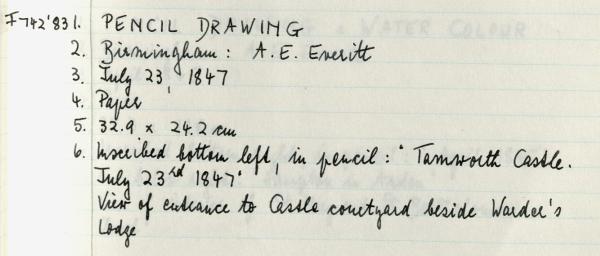 F742'83 1. PENCIL DRAWING
2. Birmingham: A.E. Everitt
3. July 23, 1847
4. Paper
5. 32.9 x 24.2 cm
6. Inscribed bottom left, in pencil: 'Tamworth Castle.
July 23rd 1847'
View of entrance to Castle courtyard beside Warder's
Lodge